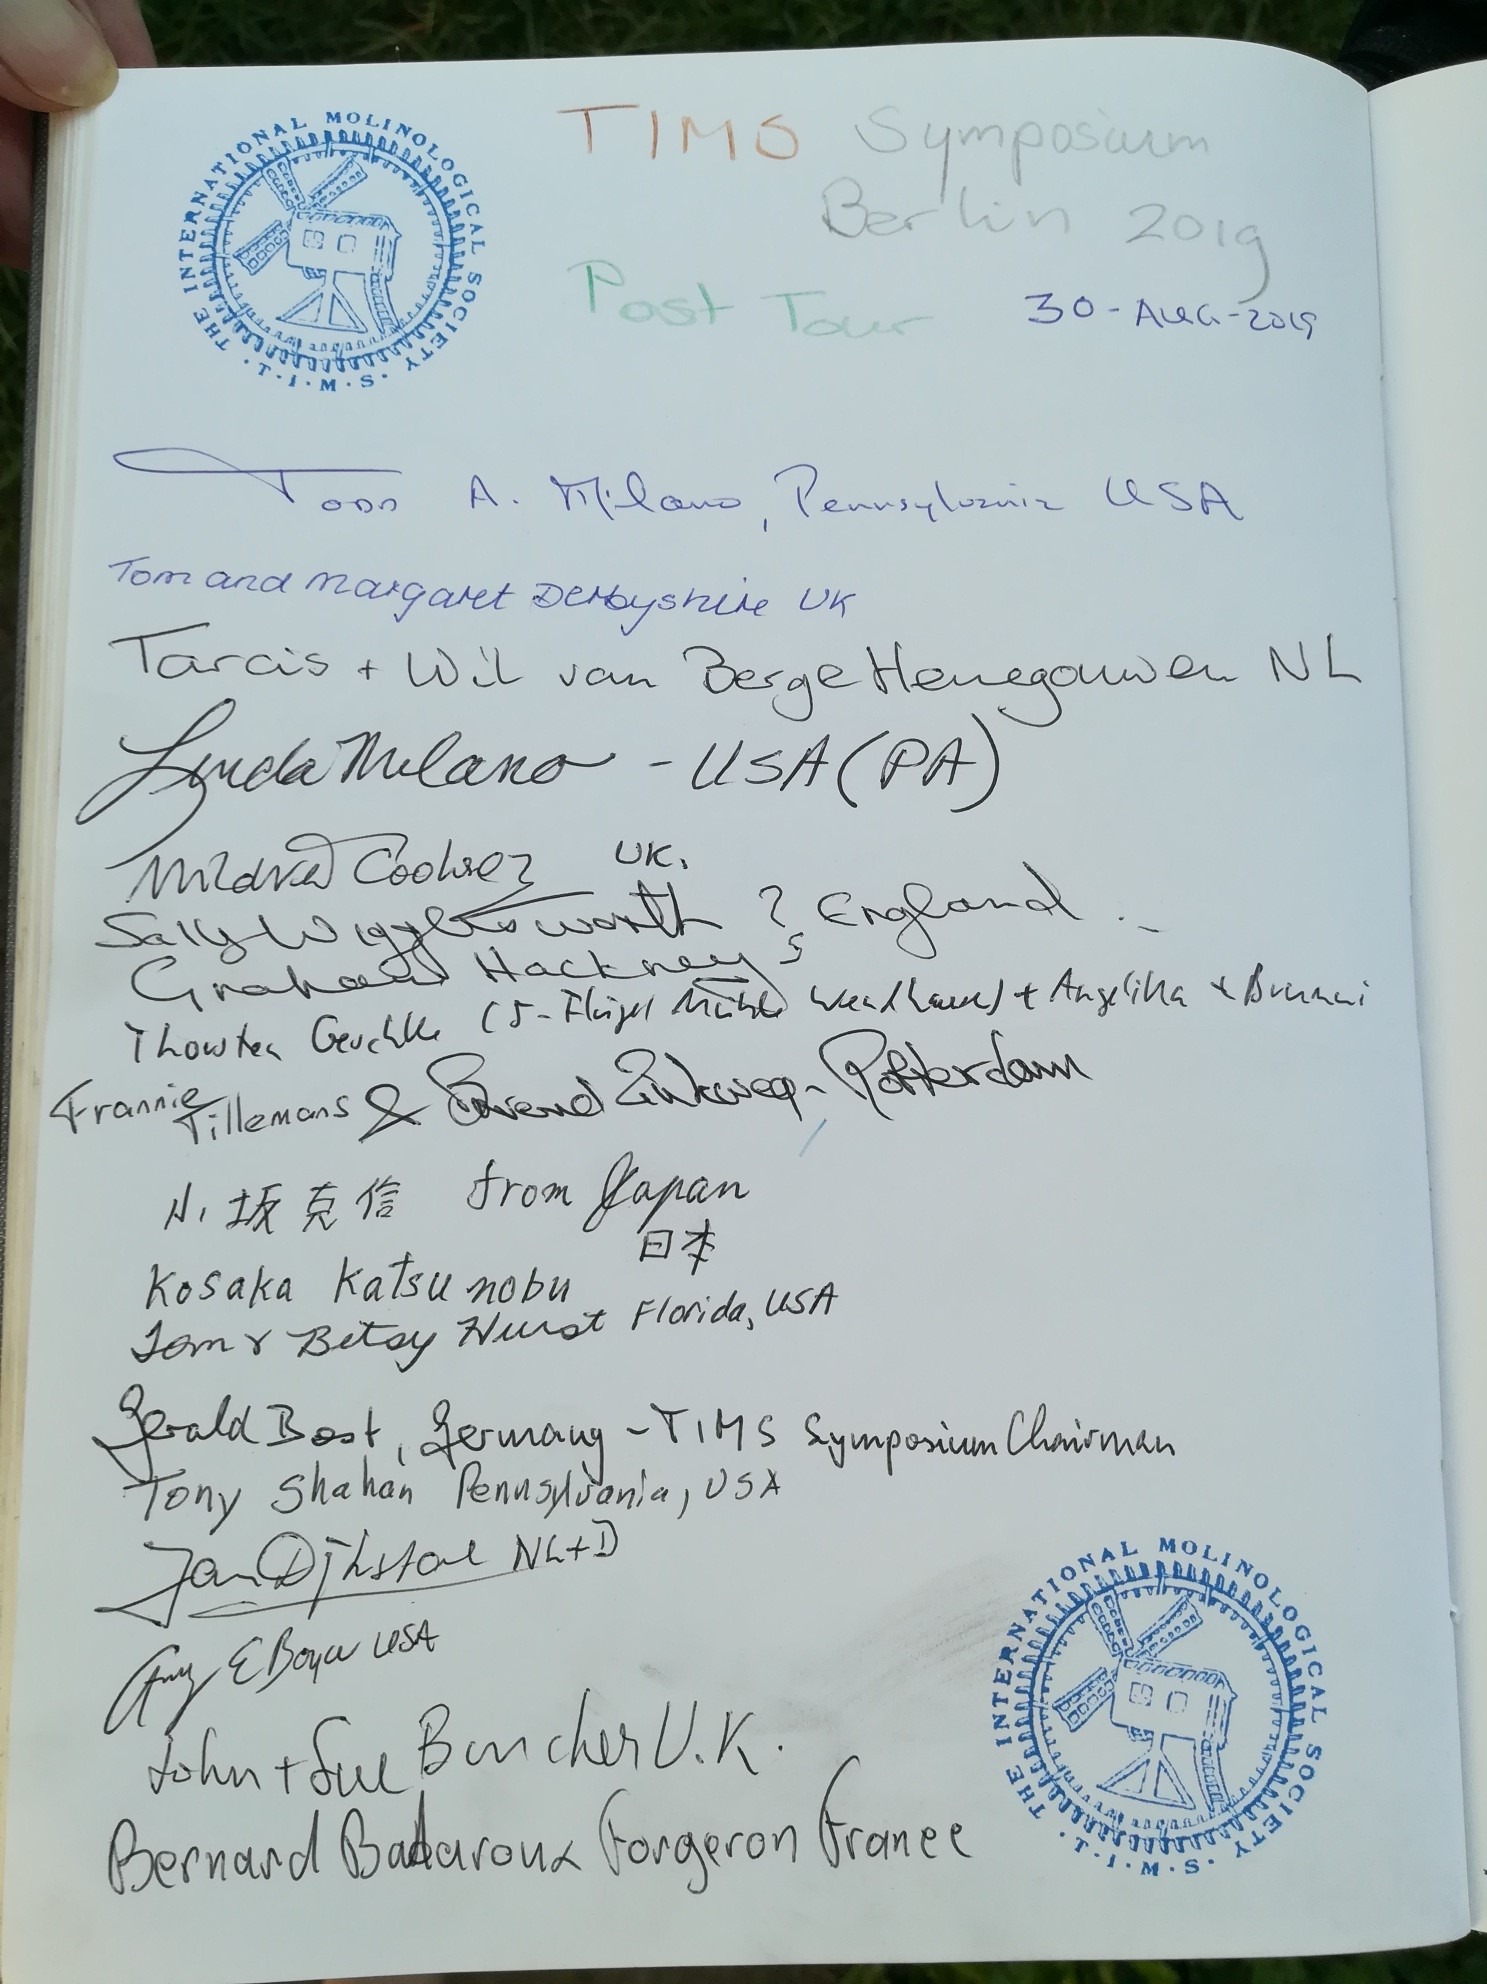 THE INTERNATIONAL MOLINOLOGICAL SOCIETY
· T · I · M · S ·
TIMS Symposium
Berlin 2019
Post Tour 30-AUG-2019
Todd A. Milano, Pennsylvania USA
Tom and Margaret Derbyshire UK
Tarcis + Wil van Berge Henegouwen NL
Linda Milano - USA (PA)
Mildred Cookson UK.
Sally Wigglesworth ? England.
Graham Hackney
(5-Flügel Mühle + Angelika +
Frannie Tillemans & - Rotterdam
小坂克信 from Japan
日本
Kosaka Katsunobu
Tom & Betsy Hurst Florida, USA
Gerald Bost, Germany - TIMS Symposium Chairman
Tony Shahan Pennsylvania, USA
Jan Dijkstra NL+D
Amy E Boyce USA
John + Sue Boucher U.K.
Bernard Badaroux Forgeron France
THE INTERNATIONAL MOLINOLOGICAL SOCIETY
· T · I · M · S ·